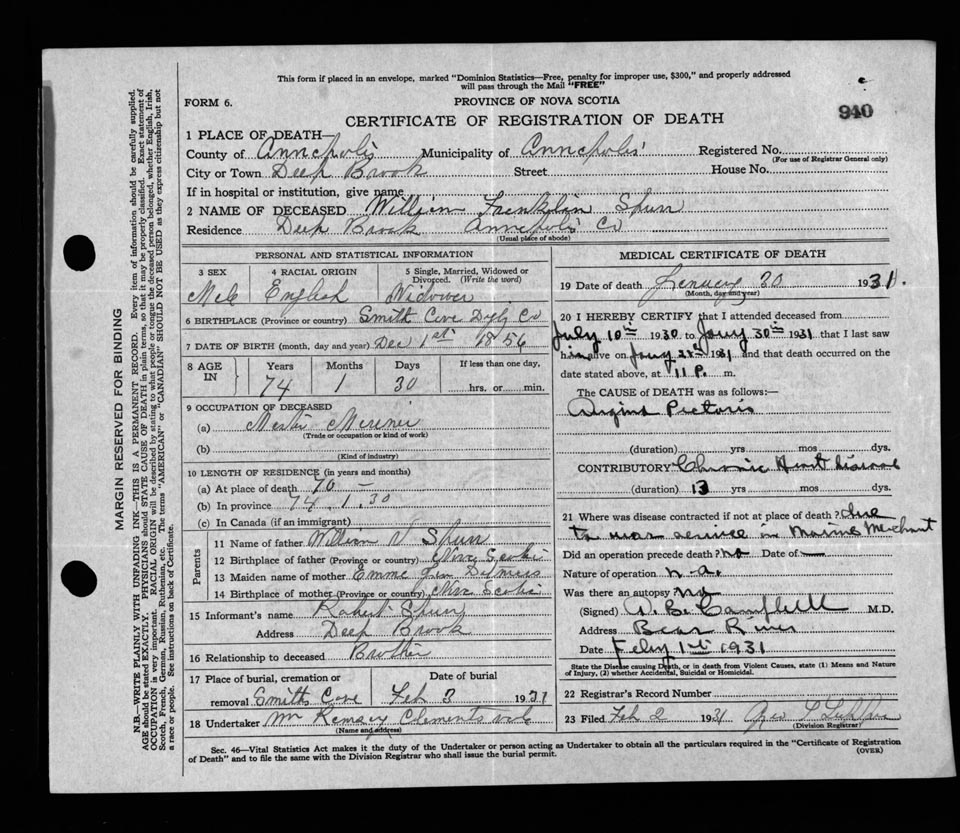 This form if placed in an envelope, marked "Dominion Statistics—Free, penalty for improper use, $300," and properly addressed
will pass through the Mail "FREE"
FORM 6.
PROVINCE OF NOVA SCOTIA
940
CERTIFICATE OF REGISTRATION OF DEATH
1 PLACE OF DEATH—
County of Annapolis Municipality of Annapolis Registered No.
(For use of Registrar General only)
City or Town Deep Brook Street House No.
If in hospital or institution, give name
2 NAME OF DECEASED William Franklin Spurr
Residence Deep Brook Annapolis Co
(Usual place of abode)
PERSONAL AND STATISTICAL INFORMATION
3 SEX 4 RACIAL ORIGIN 5 Single, Married, Widowed or
Divorced. (Write the word)
Male English Widower
6 BIRTHPLACE (Province or country) Smith Cove Digby Co
7 DATE OF BIRTH (month, day and year) Dec 1st 1856
8 AGE IN Years Months Days If less than one day,
74 1 30 hrs. or min.
9 OCCUPATION OF DECEASED
(a) Master Mariner
(Trade or occupation or kind of work)
(b)
(Kind of industry)
10 LENGTH OF RESIDENCE (in years and months)
(a) At place of death 70 —
(b) In province 74. 1. 30
(c) In Canada (if an immigrant)
Parents
11 Name of father William V Spurr
12 Birthplace of father (Province or country) Nova Scotia
13 Maiden name of mother Emma Ditmars
14 Birthplace of mother (Province or country) Nova Scotia
15 Informant's name Robert Spurr
Address Deep Brook
16 Relationship to deceased Brother
17 Place of burial, cremation or removal Date of burial
Smiths Cove Feb 3 1931
18 Undertaker Mr Ramsey Clementsvale
(Name and address)
MEDICAL CERTIFICATE OF DEATH
19 Date of death January 30 1931.
(Month, day and year)
20 I HEREBY CERTIFY that I attended deceased from
July 10th 1930 to Jany 30th 1931 that I last saw
him alive on Jany 1931 and that death occurred on the
date stated above, at 11 P. m.
The CAUSE OF DEATH was as follows:—
Angina Pectoris
(duration) yrs mos dys.
CONTRIBUTORY Chronic Heart disease
(duration) 13 yrs mos dys.
21 Where was disease contracted if not at place of death? Due
to war service in Marine Merchant
Did an operation precede death? no Date of —
Nature of operation n.a.
Was there an autopsy no
(Signed) Campbell M.D.
Address Bear River
Date Feby 1st 1931
State the Disease causing Death, or in death from Violent Causes, state (1) Means and Nature
of Injury, (2) whether Accidental, Suicidal or Homicidal.
22 Registrar's Record Number
23 Filed Feb 2 1931
(Division Registrar)
Sec. 46—Vital Statistics Act makes it the duty of the Undertaker or person acting as Undertaker to obtain all the particulars required in the "Certificate of Registration
of Death" and to file the same with the Division Registrar who shall issue the burial permit.
(OVER)
MARGIN RESERVED FOR BINDING
N.B.—WRITE PLAINLY WITH UNFADING INK—THIS IS A PERMANENT RECORD. Every item of information should be carefully supplied.
AGE should be stated EXACTLY. PHYSICIANS should STATE CAUSE OF DEATH in plain terms, so that it may be properly classified. Exact statement of
OCCUPATION is very important. RACIAL ORIGIN will be described by stating to what people or tongue the deceased person belonged, whether English, Irish,
Scotch, French, German, Russian, Ruthenian, etc. The terms "AMERICAN" or "CANADIAN" SHOULD NOT BE USED as they express citizenship but not
a race or people. See instructions on back of Certificate.